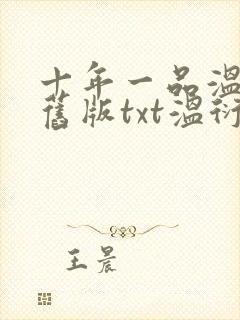 十年一品温
舊版txt温衍
王晨